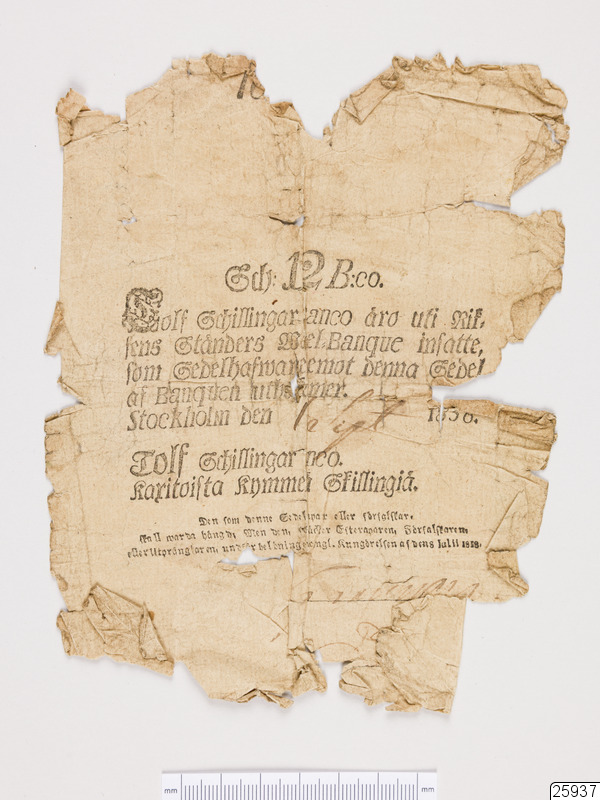 Sch: 12 B:co.
Tolf Schillingar anco äro uti Rik-
sens Ständers Wäxel-Banque insatte,
som Sedelhafwar emot denna Sedel
af Banquen
Stockholm den 1830.
Tolf Schillingar nco.
Kaxitoista Kymmen Skillingiä.
Den som denne Sedel eller förfalskar,
skall warda hängd; Men den, Efterapparen, Förfalskaren
eller Kungörelsen af den Julii 1818.
mm mm
25937